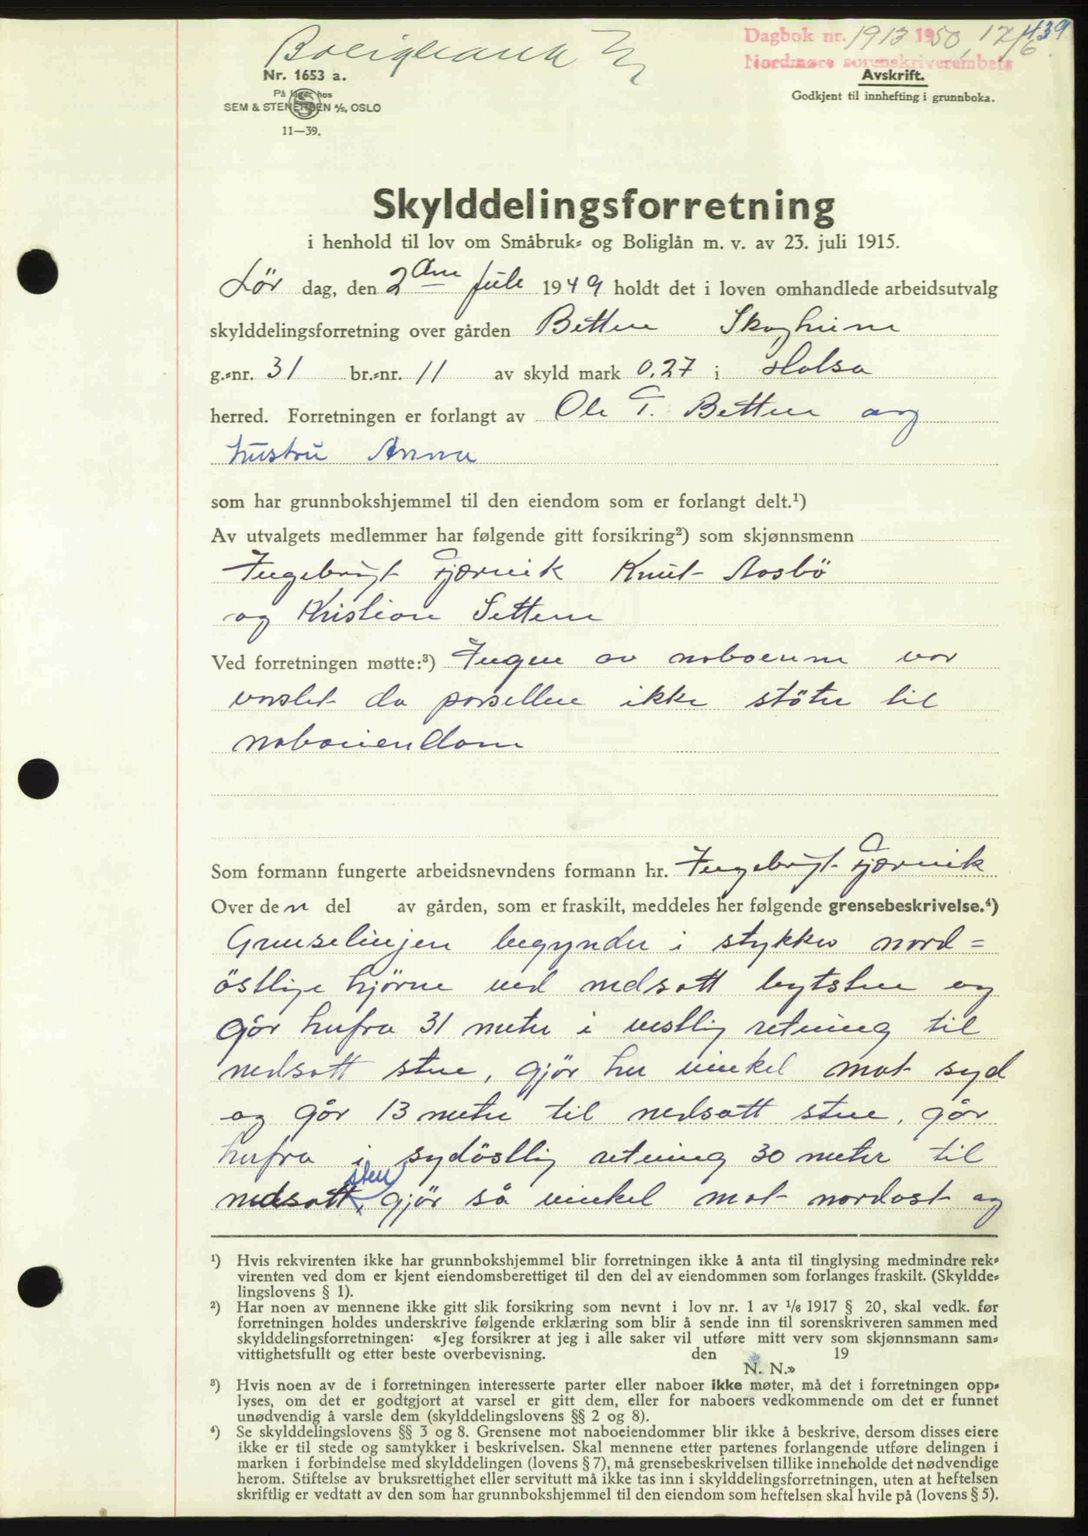 Boligbank
Dagbok nr. 1913 1950, 17/6 439
Nordmøre sorenskriverembete
Nr. 1653 a.
På lager hos
SEM & STENERSEN A/S, OSLO
11—39.
Avskrift.
Godkjent til innhefting i grunnboka.
Skylddelingsforretning
i henhold til lov om Småbruk- og Boliglån m. v. av 23. juli 1915.
Lør dag, den 2den juli 1949 holdt det i loven omhandlede arbeidsutvalg
skylddelingsforretning over gården Betten Skogheim
g.-nr. 31 br.-nr. 11 av skyld mark 0.27 i Halsa
herred. Forretningen er forlangt av Ole T. Betten og
hustru Anna
som har grunnbokshjemmel til den eiendom som er forlangt delt.¹)
Av utvalgets medlemmer har følgende gitt forsikring²) som skjønnsmenn
Ingebrigt Gjærvik Knut Aasbö
og Kristian Settem
Ved forretningen møtte:³) Ingen av naboerne var
varslet da parsellen ikke støter til
naboeiendom
Som formann fungerte arbeidsnevndens formann hr. Ingebrigt Gjærvik
Over den del av gården, som er fraskilt, meddeles her følgende grensebeskrivelse.⁴)
Grenselinjen begynder i stykkes nord=
östlige hjörne ved nedsatt bytsten og
går herfra 31 meter i vestlig retning til
nedsatt sten, gjör her vinkel mot syd
og går 13 meter til nedsatt sten, går
herfra i sydöstlig retning 30 meter til
nedsatt sten, gjör så vinkel mot nordost og
¹) Hvis rekvirenten ikke har grunnbokshjemmel blir forretningen ikke å anta til tinglysing medmindre rek-
virenten ved dom er kjent eiendomsberettiget til den del av eiendommen som forlanges fraskilt. (Skyldde-
lingslovens § 1).
²) Har noen av mennene ikke gitt slik forsikring som nevnt i lov nr. 1 av 1/6 1917 § 20, skal vedk. før
forretningen holdes underskrive følgende erklæring som blir å sende inn til sorenskriveren sammen med
skylddelingsforretningen: «Jeg forsikrer at jeg i alle saker vil utføre mitt verv som skjønnsmann sam-
vittighetsfullt og etter beste overbevisning. den 19
N. N.»
³) Hvis noen av de i forretningen interesserte parter eller naboer ikke møter, må det i forretningen opp-
lyses, om det er godtgjort at varsel er gitt dem, eller for naboers vedkommende om det er funnet
unødvendig å varsle dem (skylddelingslovens §§ 2 og 8).
⁴) Se skylddelingslovens §§ 3 og 8. Grensene mot naboeiendommer blir ikke å beskrive, dersom disses eiere
ikke er til stede og samtykker i beskrivelsen. Skal mennene etter partenes forlangende utføre delingen i
marken i forbindelse med skylddelingen (lovens § 7), må grensebeskrivelsen tillike inneholde det nødvendige
herom. Stiftelse av bruksrettighet eller servitutt må ikke tas inn i skylddelingsforretningen, uten at heftelsen
skriftlig er vedtatt av den som har grunnbokshjemmel til den eiendom som heftelsen skal hvile på (lovens § 5).